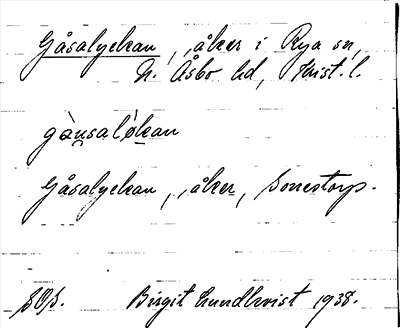 Gåsalyckan, åker i Rya sn,
N. Åsbo hd, Krist. l.
gàusalỳkan
Gåsalyckan, åker, Sonestorp.
Birgit Lundkvist 1938.